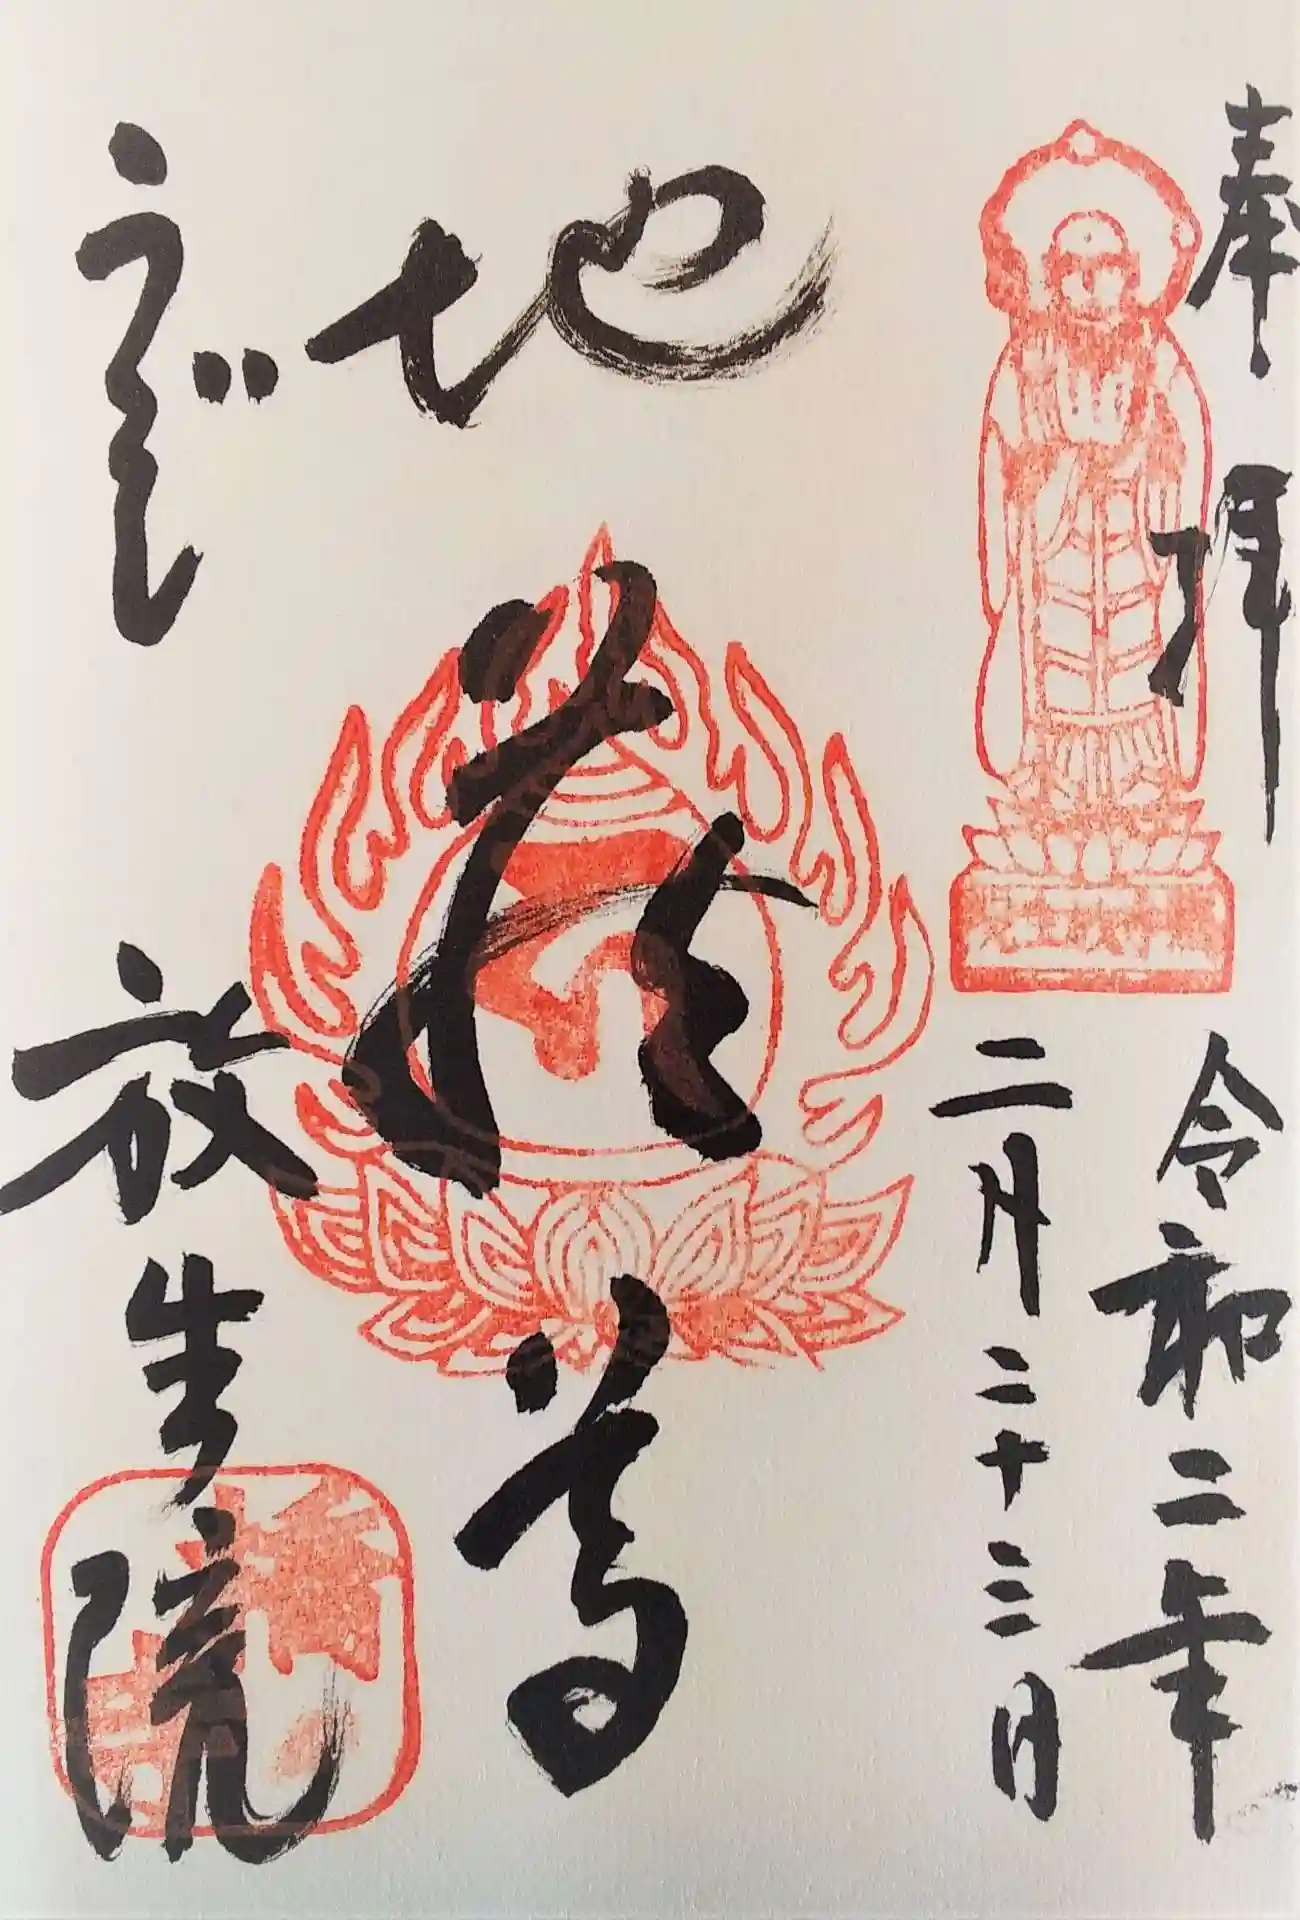 奉拝
令和二年
二月二十三日
地蔵尊
うぢ 放生院